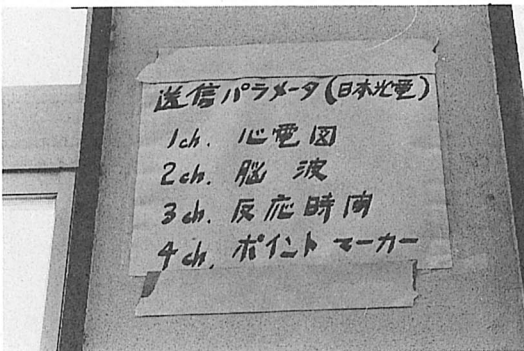 送信パラメータ(日本光電)
1ch. 心電図
2ch. 脳波
3ch. 反応時間
4ch. ポイントマーカー